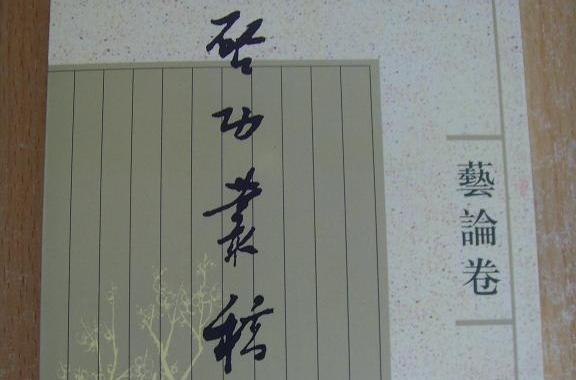 啓功叢稿
藝論卷